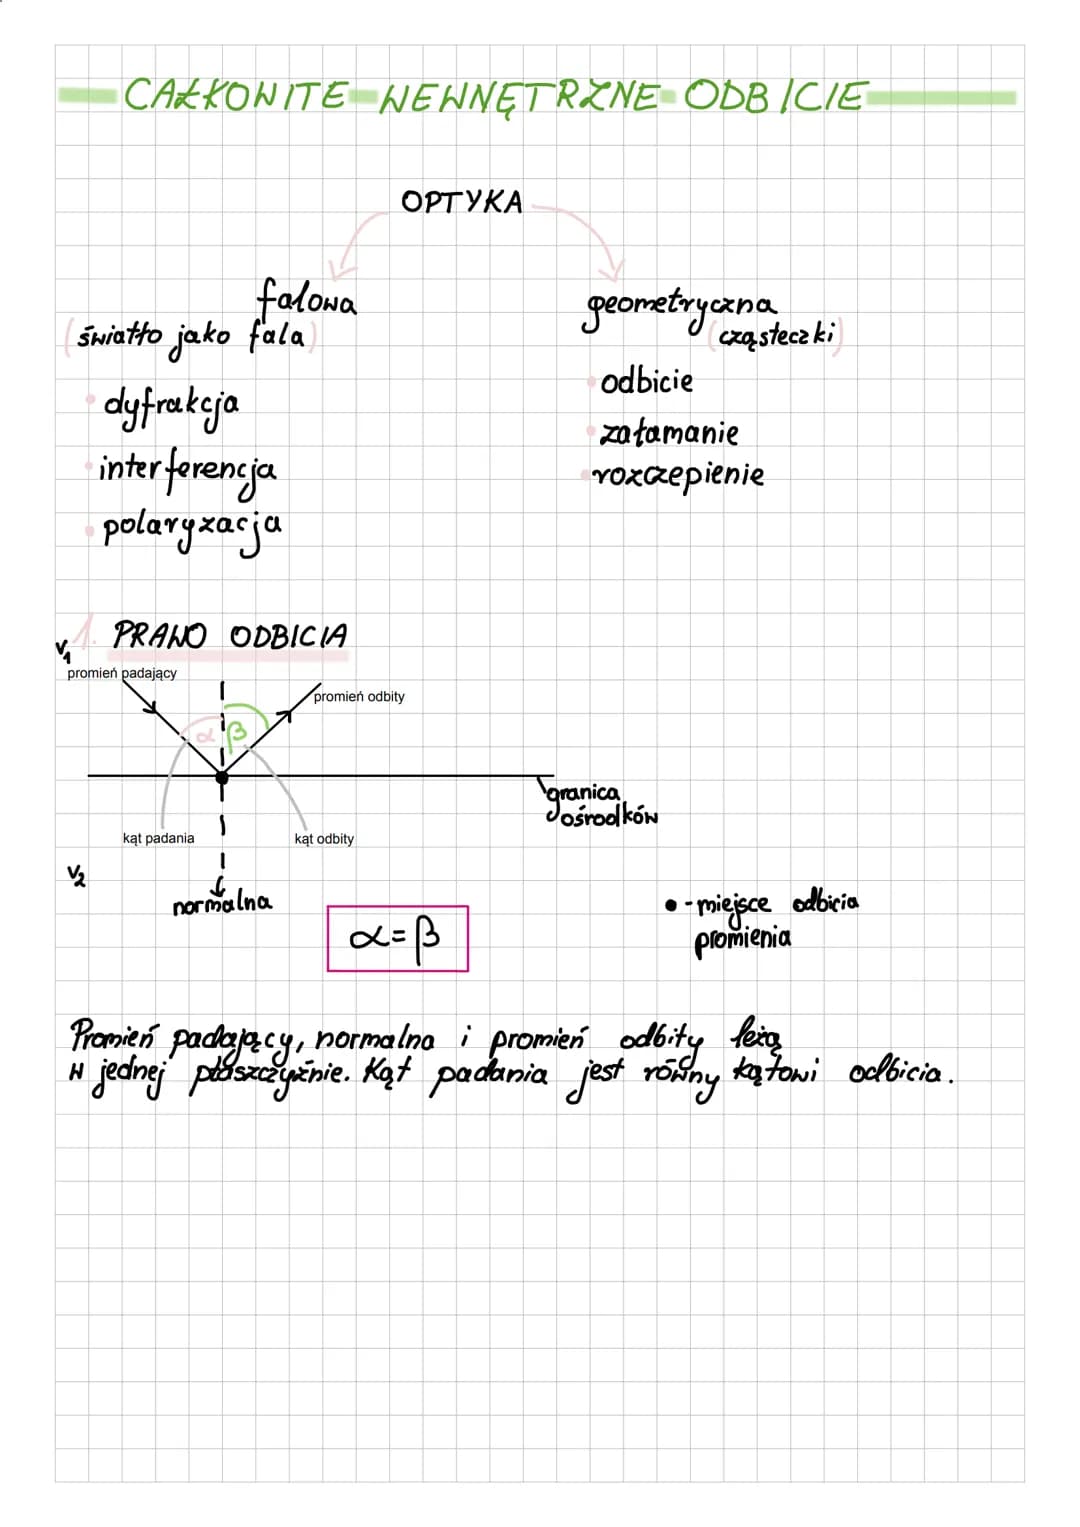 CAŁKOWITE WEWNĘTRZNE ODBICIE
OPTYKA
falowa
(światło jako fala)
• dyfrakcja
• interferencja
• polaryzacja
geometryczna
(cząsteczki)
• odbicie
• załamanie
• rozczepienie
1. PRAWO ODBICIA
V₁
promień padający
promień odbity
α
β
granica
ośrodków
kąt padania
kąt odbity
V₂
normalna
α=β
• - miejsce odbicia
promienia
Promień padający, normalna i promień odbity leżą
w jednej płaszczyźnie. Kąt padania jest równy kątowi odbicia.